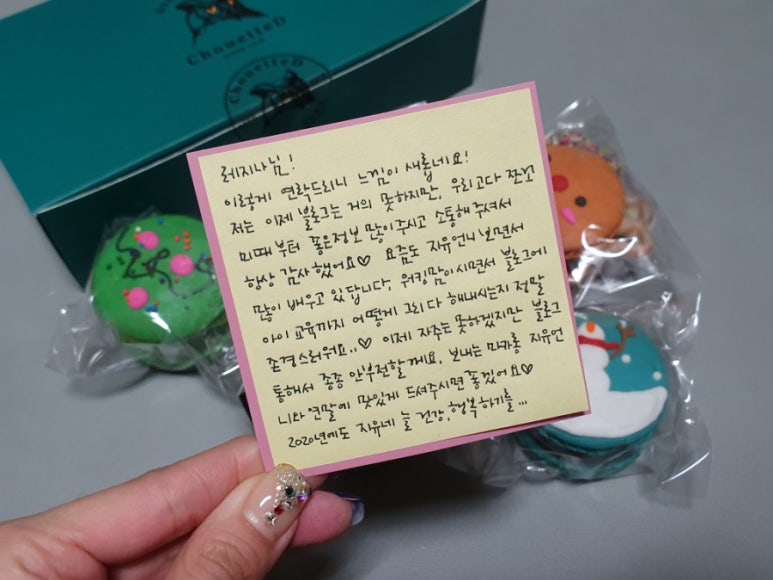 ChouetteD
SINCE 2016
ChouetteD
레지나님!
이렇게 연락드리니 느낌이 새롭네요!
저는 이제 블로그는 거의 못하지만, 우리고다
때부터 좋은정보 많이주시고 소통해주셔서
항상 감사했어요♡ 요즘도 지유언니보면서
많이 배우고 있답니다, 워킹맘이시면서 블로그에
아이 교육까지 어떻게 그리 다 해내시는지 정말
존경스러워요..♡ 이제 자주는 못하겠지만 블로그
통해서 종종 안부전할께요, 보내는 마카롱 지유언
니와 연말에 맛있게 드셔주시면 좋겠어요♡
2020년에도 지유네 늘 건강,행복하기를...